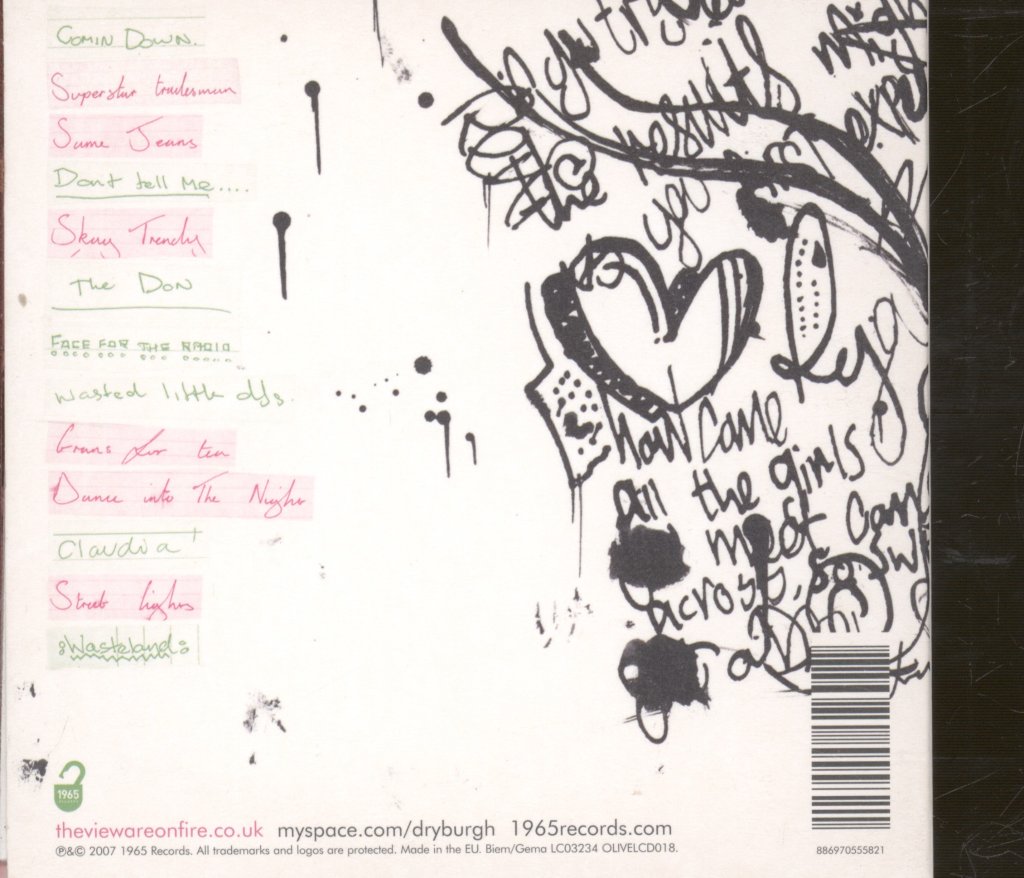 Comin Down.
Superstar tradesman
Same Jeans
Dont tell Me....
Skag Trendy
The Don
FACE FOR THE RADIO
Wasted little DJs.
Grans for tea
Dance into The Night
Claudia
Street lights
Wasteland
the results
how come
all the girls
meet
across, so
1965
RECORDS
theviewareonfire.co.uk myspace.com/dryburgh 1965records.com
℗&© 2007 1965 Records. All trademarks and logos are protected. Made in the EU. Biem/Gema LC03234 OLIVELCD018.
886970555821